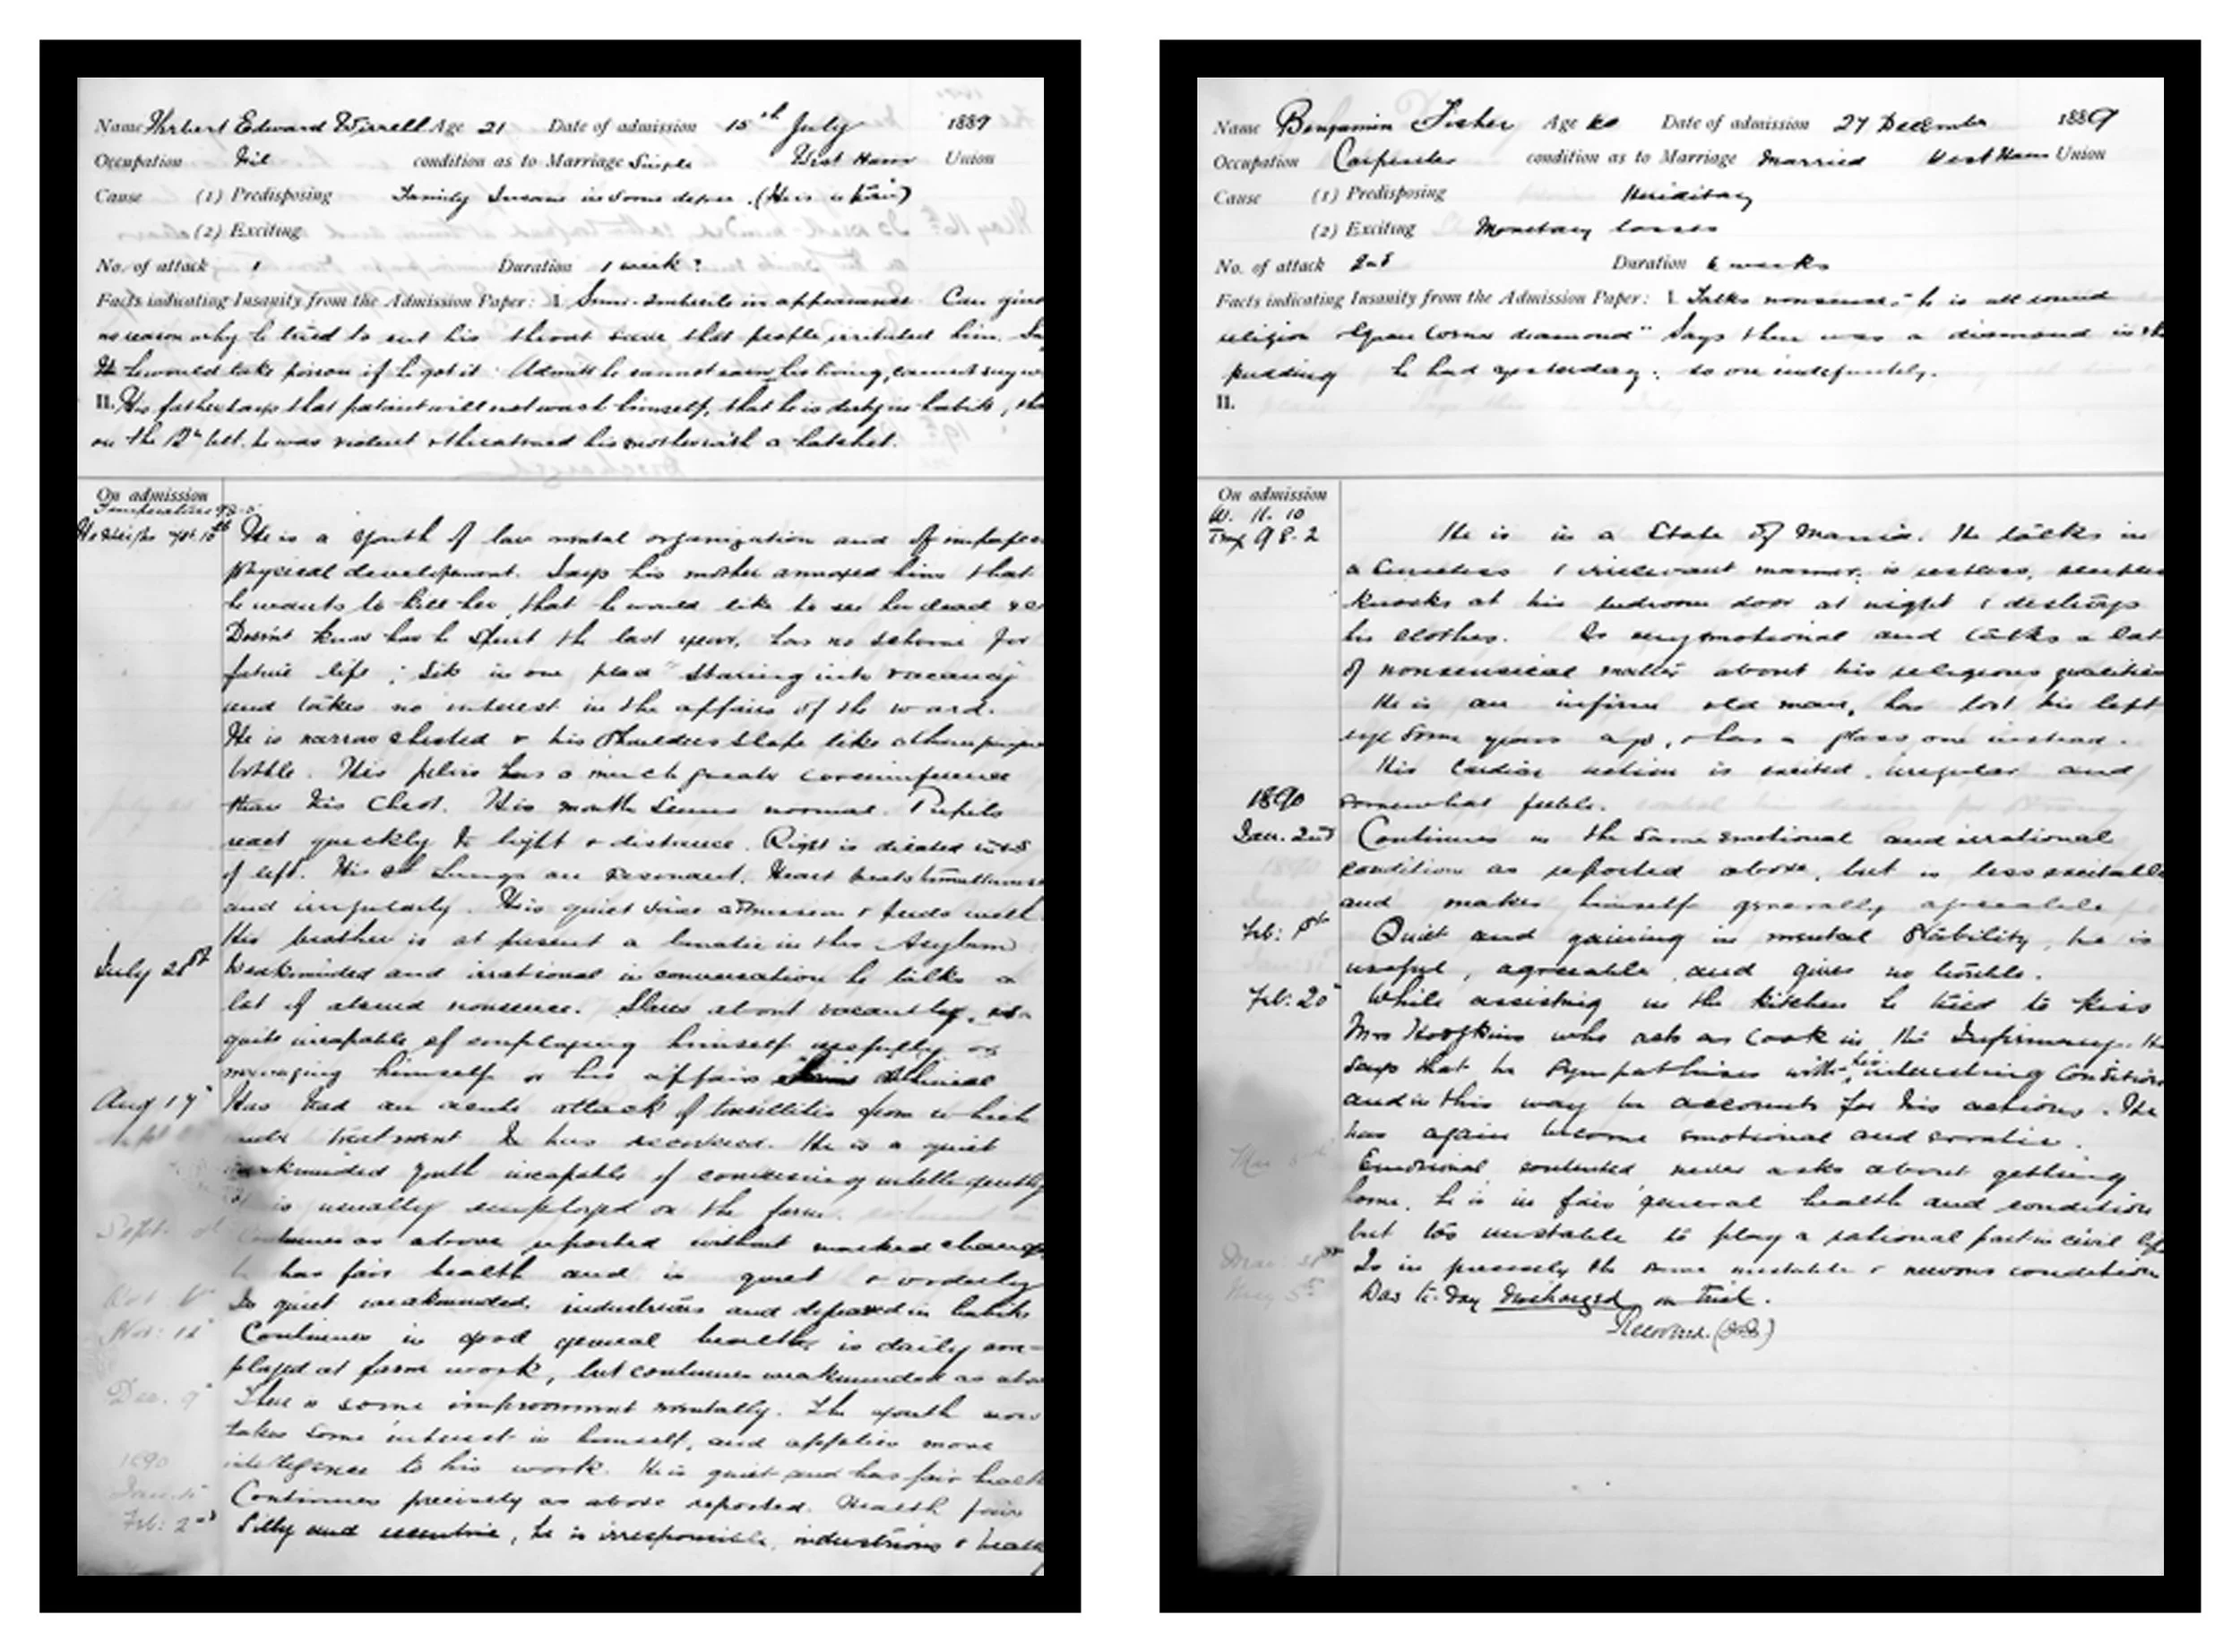 Name Herbert Edward Age 21 Date of admission 15th July 1889
Occupation Nil condition as to Marriage Single West Ham Union
Cause (1) Predisposing Family Insane in some degree. (He is a
(2) Exciting
No. of attack 1 Duration 1 week?
Facts indicating Insanity from the Admission Paper: I. Semi-imbecile in appearance. Can give
no reason why he tried to cut his throat save that people irritated him.
he would take poison if he got it. Admits he cannot earn his living, cannot say
II. His father says that patient will not wash himself, that he is dirty in habits,
on the 12th ult. he was violent & threatened his mother with a hatchet.
On admission
Temperature 98.5
He weighs
He is a youth of low mental organization and of imperfect
physical development. Says his mother annoyed him that
he wants to kill her, that he would like to see her dead
Doesn't know how he spent the last year, has no scheme for
future life; Sits in one place staring into vacancy
and takes no interest in the affairs of the ward.
He is narrow chested & his shoulders slope like
bottle. His pelvis has a much greater circumference
than his chest. His mouth seems normal. Pupils
react quickly to light & distance. Right is dilated
of left. His lungs are resonant. Heart beats
and irregularly. He is quiet since admission & feeds well.
His brother is at present a lunatic in this Asylum
July 28th Weakminded and irrational in conversation he talks a
lot of absurd nonsense. Stares about vacantly, is
quite incapable of employing himself usefully or
managing himself or his affairs
Aug 17th Has had an acute attack of tonsillitis from which
under treatment he has recovered. He is a quiet
weakminded youth incapable of conversing intelligently
is usually employed on the farm.
Sept. Continues as above reported without marked change
he has fair health and is quiet & orderly
Oct. Is quiet weakminded, industrious and depraved in habits
Nov: 12th Continues in good general health, is daily em-
ployed at farm work, but continues weakminded as above
Dec. 9th There is some improvement mentally. The youth now
takes some interest in himself, and applies more
intelligence to his work. He is quiet and has fair health
1890
Jan. Continues precisely as above reported. Health fair
Feb: 2nd Silly and eccentric, he is irresponsible, industrious &
Name Benjamin Fisher Age 60 Date of admission 27 December 1889
Occupation Carpenter condition as to Marriage Married West Ham Union
Cause (1) Predisposing Hereditary
(2) Exciting Monetary losses
No. of attack 2nd Duration 6 weeks
Facts indicating Insanity from the Admission Paper: I. Talks nonsense, - he is all round
religion diamond" Says there was a diamond in the
pudding he had yesterday: so on indefinitely.
II.
On admission
W. 11. 10
Temp 98.2
He is in a State of Mania. He talks in
a ceaseless & irrelevant manner, is restless, sleepless
knocks at his bedroom door at night & destroys
his clothes. Is very emotional and talks a lot
of nonsensical matter about his religious qualities
He is an infirm old man, has lost his left
eye some years ago, & has a glass one instead.
His cardiac action is excited, irregular and
somewhat feeble.
1890
Jan. 2nd Continues in the same emotional and irrational
condition as reported above, but is less excitable
and makes himself generally agreeable
Feb: 8th Quiet and gaining in mental stability, he is
useful, agreeable, and gives no trouble.
Feb: 20th While assisting in the kitchen he tried to kiss
Mrs Hodgkins who acts as Cook in the Infirmary. He
says that he sympathises with his interesting condition
and in this way he accounts for his actions. He
has again become emotional and erratic.
Mar Emotional contented never asks about getting
home. he is in fair general health and condition
but too unstable to play a rational part in civil life
Mar: Is in precisely the same unstable & nervous condition
May 5th Was to-day Discharged on Trial.
Recovered.